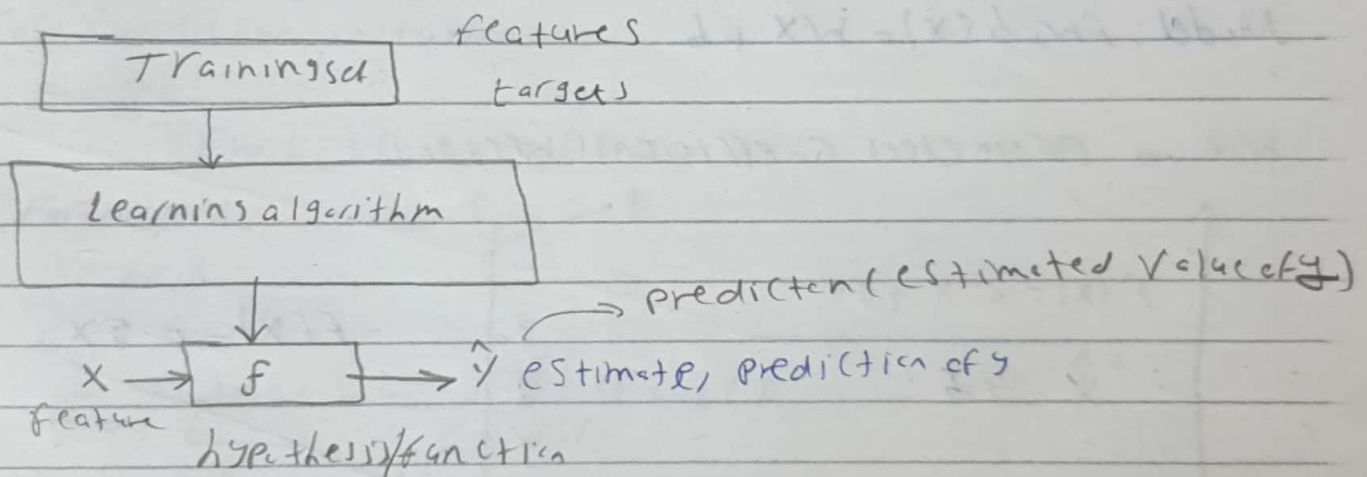 features
Trainingset
targets
Learning algorithm
prediction (estimated value of y)
x → f → ŷ estimate, prediction of y
feature
hypothesis/function